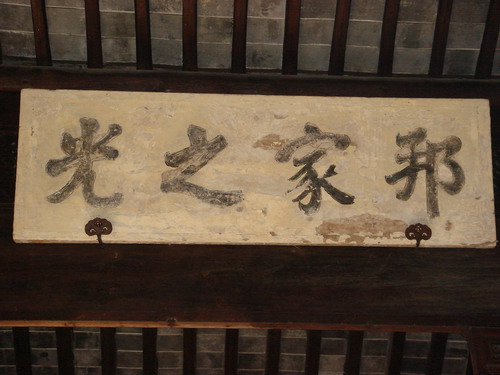 邦家之光